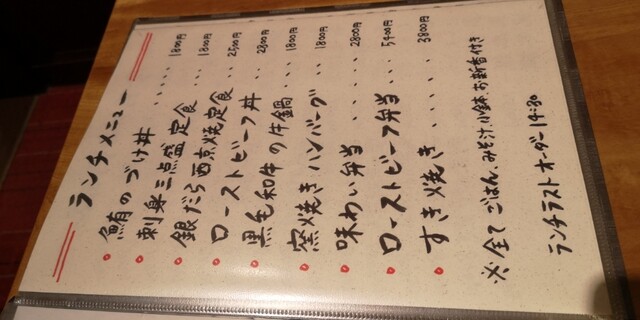 ランチメニュー
鮪のづけ丼 ..... 1800円
刺身三点盛定食 .. 1800円
銀だら西京焼定食 .. 2500円
ローストビーフ丼 ... 2300円
黒毛和牛の牛鍋 .... 1800円
窯焼きハンバーグ .. 1800円
味わい弁当 ..... 2800円
ローストビーフ弁当 ... 5400円
すき焼き ...... 3800円
※全てごはん、みそ汁、小鉢、お新香付き
ランチラストオーダー14:30